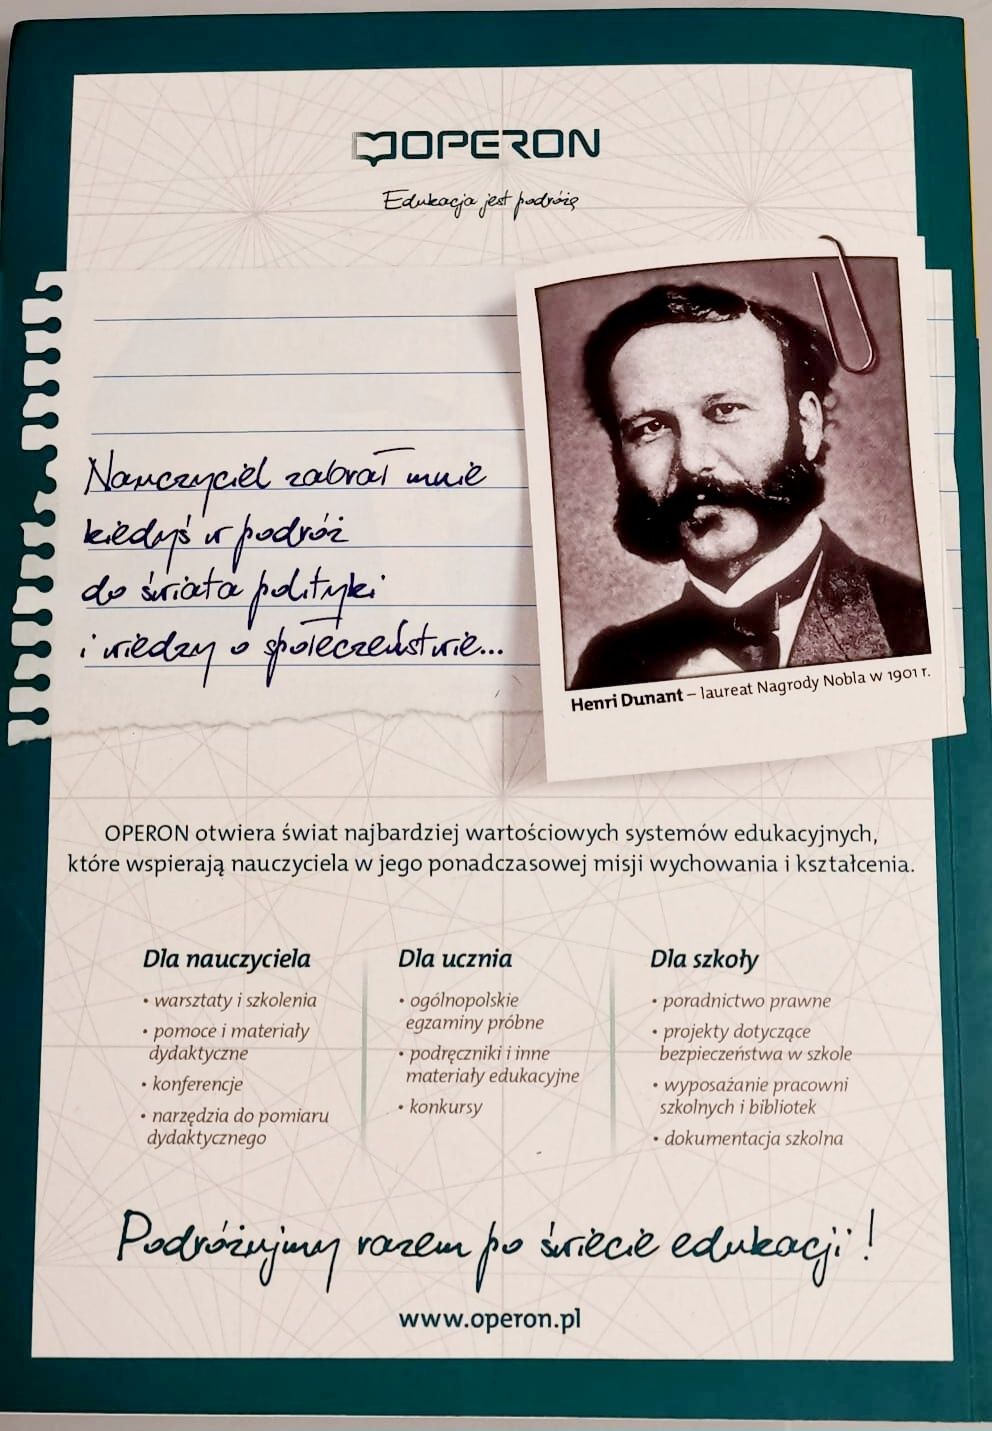 OPERON
Edukacja jest podróżą
Nauczyciel zabrał mnie
kiedyś w podróż
do świata polityki
i wiedzy o społeczeństwie...
Henri Dunant – laureat Nagrody Nobla w 1901 r.
OPERON otwiera świat najbardziej wartościowych systemów edukacyjnych,
które wspierają nauczyciela w jego ponadczasowej misji wychowania i kształcenia.
Dla nauczyciela
• warsztaty i szkolenia
• pomoce i materiały
dydaktyczne
• konferencje
• narzędzia do pomiaru
dydaktycznego
Dla ucznia
• ogólnopolskie
egzaminy próbne
• podręczniki i inne
materiały edukacyjne
• konkursy
Dla szkoły
• poradnictwo prawne
• projekty dotyczące
bezpieczeństwa w szkole
• wyposażanie pracowni
szkolnych i bibliotek
• dokumentacja szkolna
Podróżujmy razem po świecie edukacji!
www.operon.pl